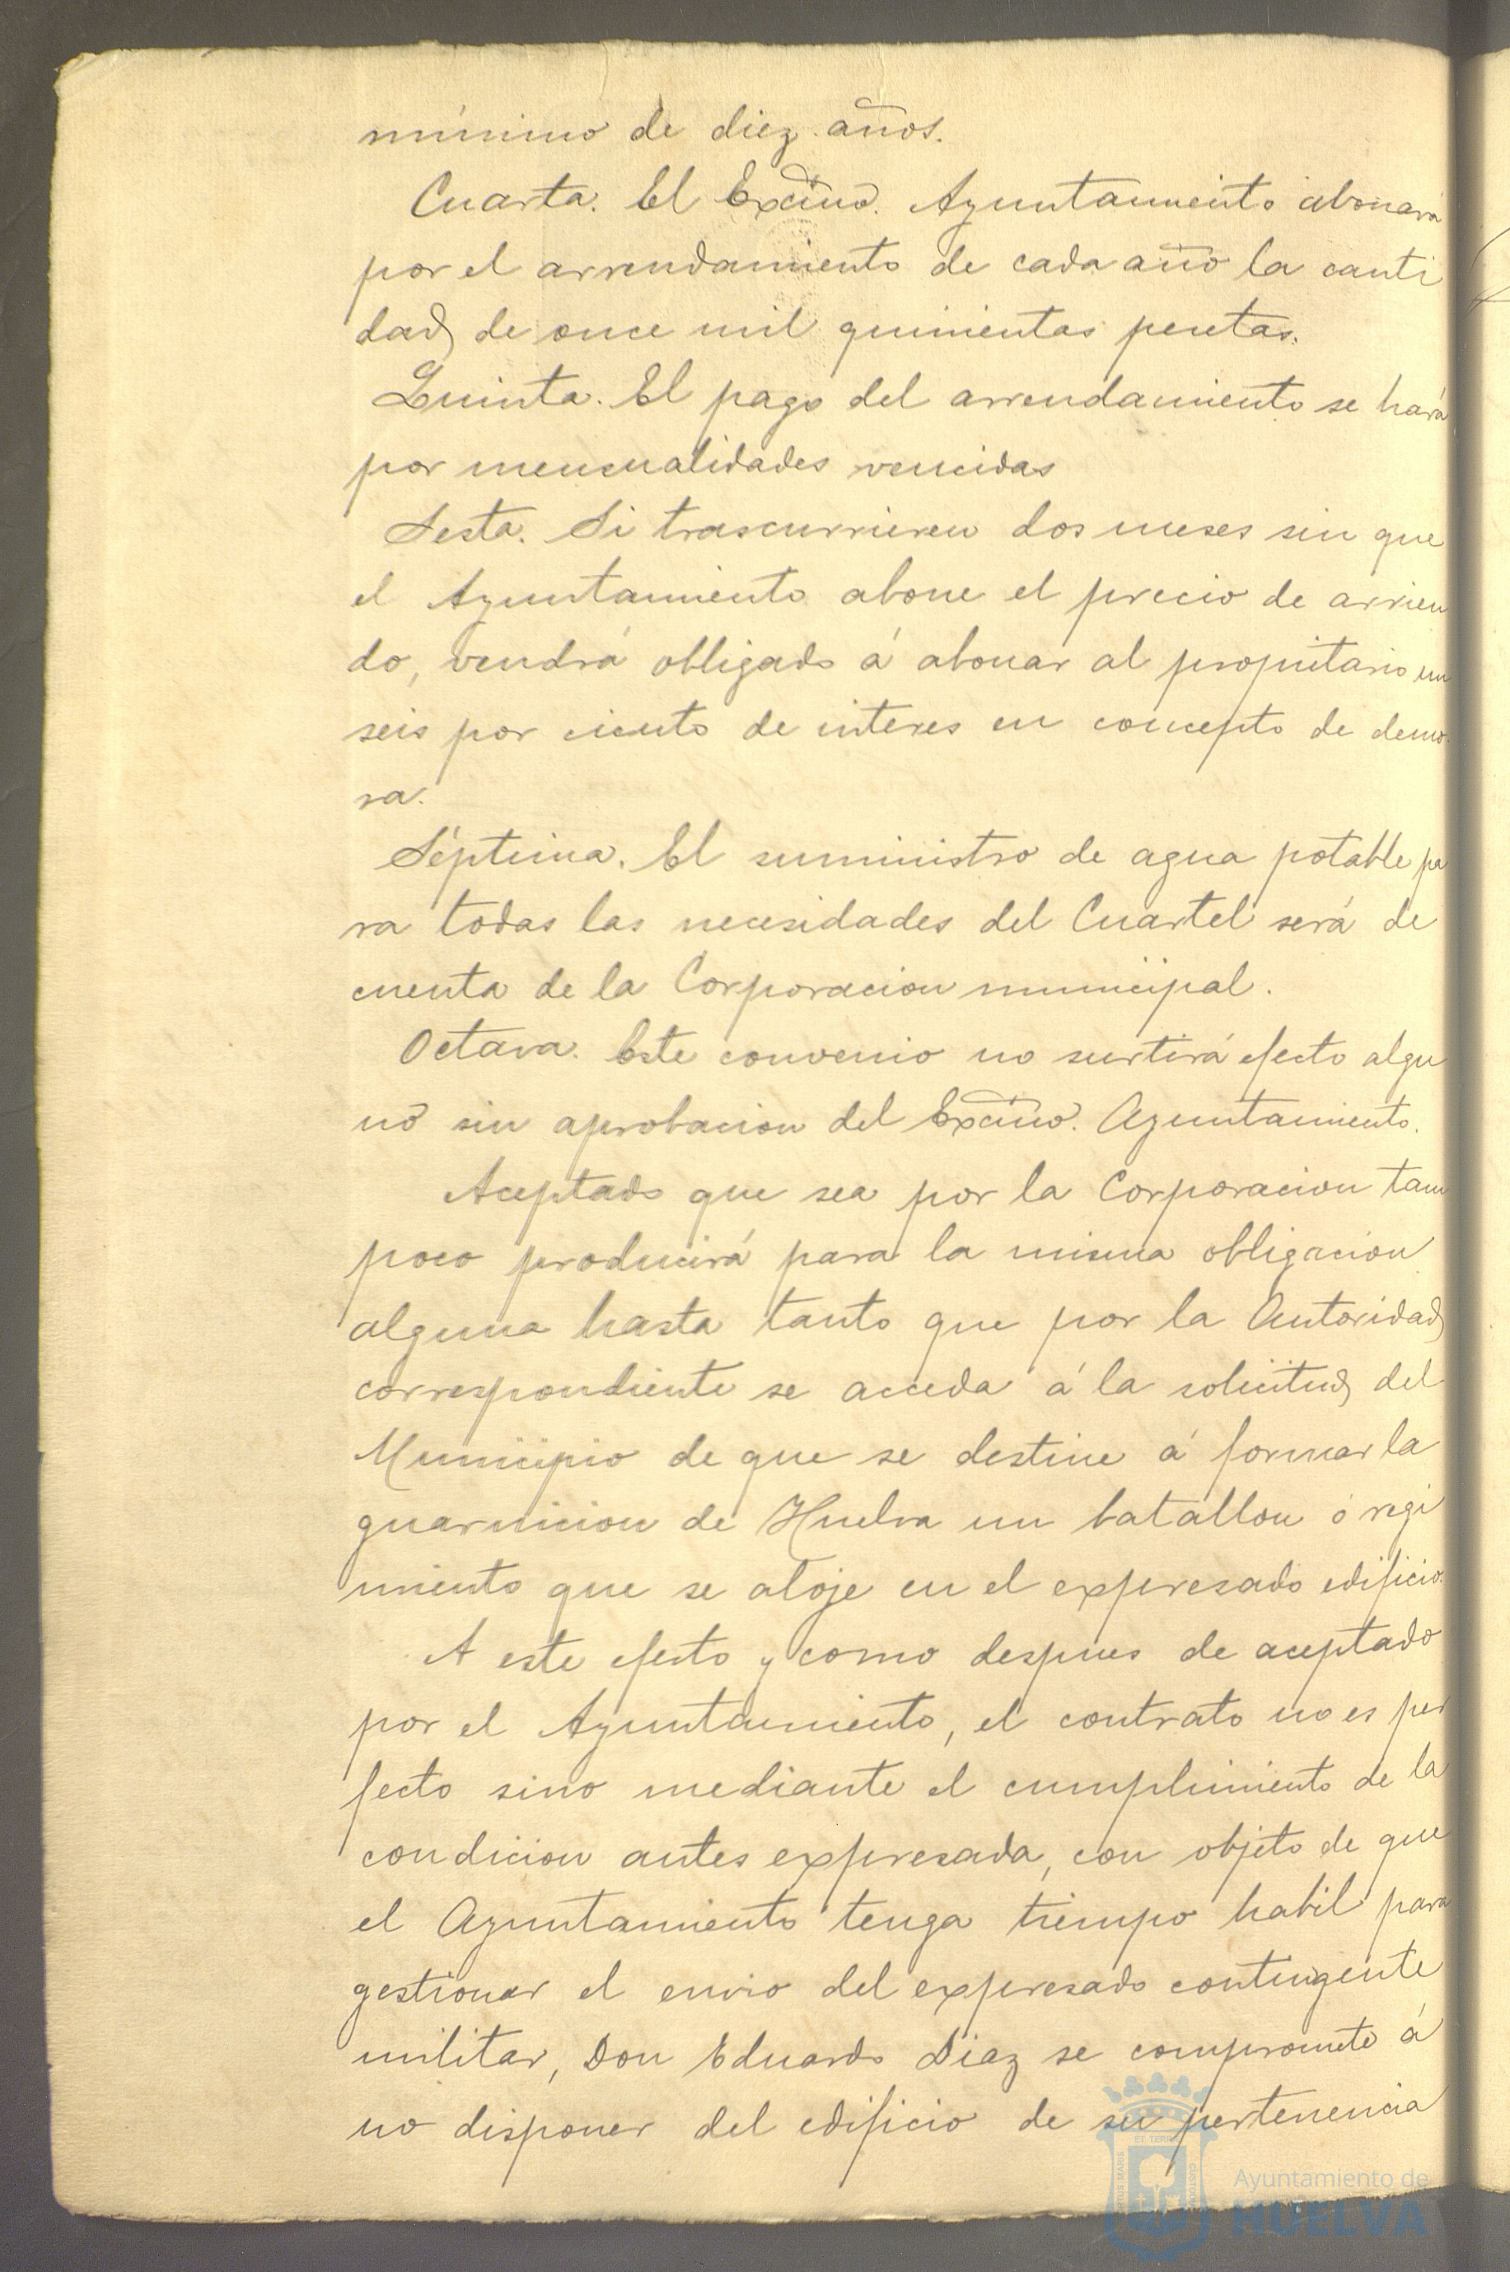 mínimo de diez años.
Cuarta. El Excmo. Ayuntamiento abonará
por el arrendamiento de cada año la canti
dad de once mil quinientas pesetas.
Quinta. El pago del arrendamiento se hará
por mensualidades vencidas
Sesta. Si trascurrieren dos meses sin que
el Ayuntamiento abone el precio de arrien
do, vendrá obligado á abonar al propietario un
seis por ciento de interes en concepto de demo
ra.
Séptima. El suministro de agua potable pa
ra todas las necesidades del Cuartel será de
cuenta de la Corporacion municipal.
Octava. Este convenio no surtirá efecto algu
no sin aprobacion del Excmo. Ayuntamiento.
Aceptado que sea por la Corporacion tam
poco producirá para la misma obligacion
alguna hasta tanto que por la Autoridad
correspondiente se acceda á la solicitud del
Municipio de que se destine á formar la
guarnicion de Huelva un batallon ó regi
miento que se aloje en el expresado edificio.
A este efecto y como despues de aceptado
por el Ayuntamiento, el contrato no es per
fecto sino mediante el cumplimiento de la
condicion antes expresada, con objeto de que
el Ayuntamiento tenga tiempo habil para
gestionar el envio del expresado contingente
militar, Don Eduardo Diaz se compromete á
no disponer del edificio de su pertenencia
Ayuntamiento de
HUELVA